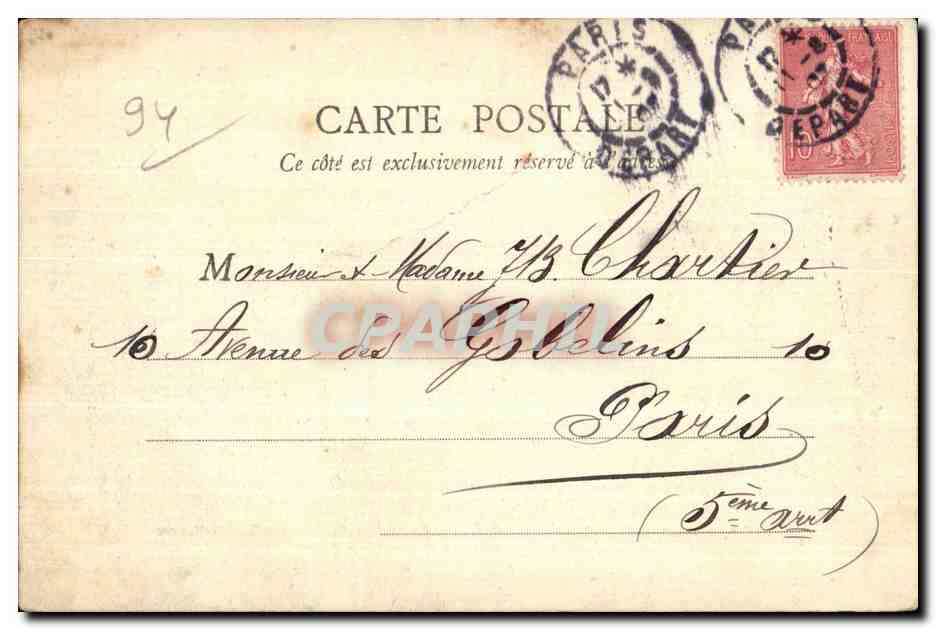 PARIS DEPART
PARIS DEPART
FRANÇAISE
10
94
CARTE POSTALE
Ce côté est exclusivement réservé à l'adresse
Monsieur & Madame J.B. Chartier
10 Avenue des Gobelins 10
Paris
(5ème arrt)
CPAPHIL